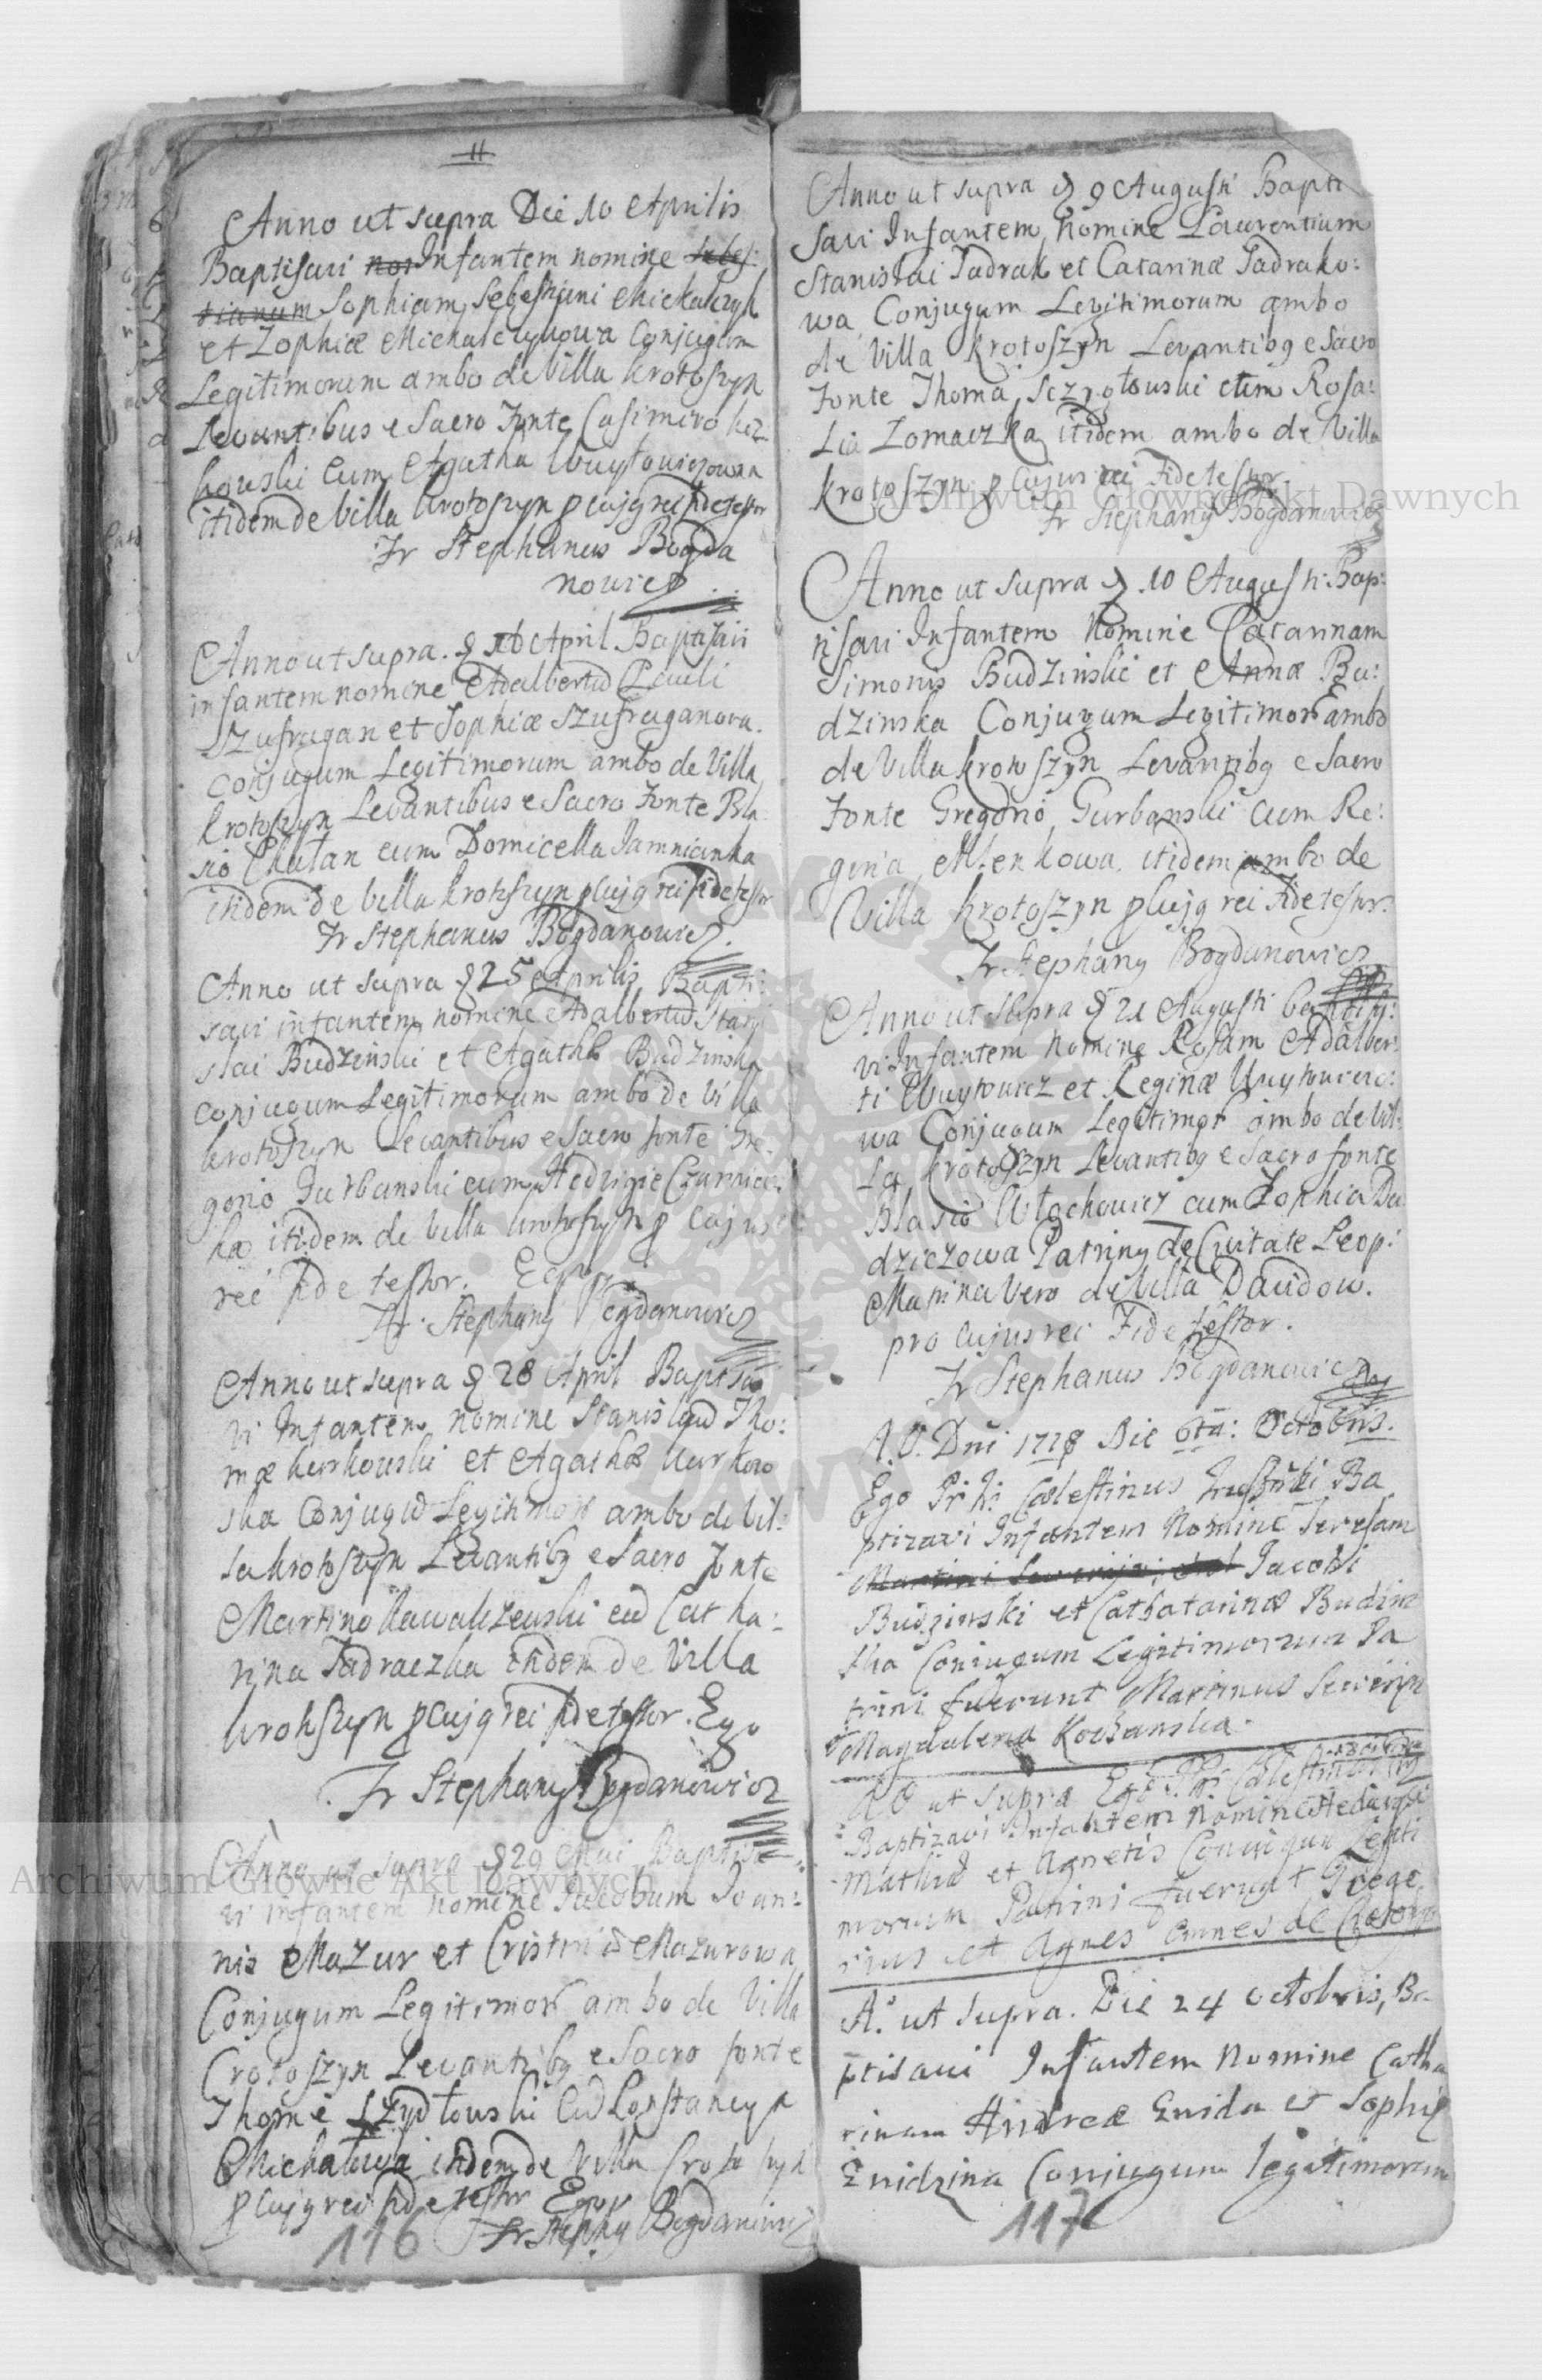 11
Anno ut supra Die 10 Aprilis
Baptisavi nos Infantem nomine Sebes:
tianum Sophiam, Sebestiani Michalczyk
et Zophiæ Michalczykowa Conjugum
Legitimorum ambo de Villa Krotoszyn
Levantibus e Sacro Fonte Casimiro
kowski Cum Agatha Wuytowiczowa
itidem de Villa Krotoszyn p cujg rei fide testor
Fr Stephanus Bogda
nowicz
Anno ut supra. d 16 April Baptisavi
infantem nomine Adalbertũ Pauli
Szufragan et Sophiæ Szufraganowa.
Conjugum Legitimorum ambo de Villa
Krotoszyn Levantibus e Sacro Fonte Bla
sio Chatan cum Domicella Jamnicanka
itidem de Villa Krotoszyn p cujg rei fide testor
Fr Stephanus Bogdanowicz.
Anno ut supra d 25 Aprilis Bapti:
savi infantem nomine Adalbertũ Stani
slai Budzinski et Agathæ Budzinska
conjugum Legitimorum ambo de Villa
Krotoszyn Levantibus e Sacro fonte Gre
gorio Gurbanski cum Hedvigie Czarniec:
ka itidem de Villa Krotoszyn p cujus
rei fide testor. Ego
Fr. Stephany Bogdanowicz
Anno ut supra d 28 April Baptisa
vi Infantem nomine Stanislaũ Tho:
mæ Kurkowski et Agathæ Kurkow
ska Conjugũ Legitimor ambo de Vil:
la Krotoszyn Levantibg e Sacro Fonte
Martino Kawalczewski cũ Catha:
rina Jadraczka itidem de Villa
Krotoszyn p cujg rei fide testor. Ego
Fr Stephany Bogdanowicz
Anno ut supra d 29 Mai Baptisa
vi infantem nomine Jacobum Joan:
nis Mazur et Cristinæ Mazurowa
Conjugum Legitimor ambo de Villa
Crotoszyn Levantibg e Sacro fonte
Thome Szydlowski Cũ Constancya
Michalowa itidem de Villa Crotoszyn
p cujg rei fide testor Ego
Fr Stephg Bogdanowicz
116
Anno ut supra d 9 Augusti Bapti
savi Infantem, Nomine Laurentium
Stanislai Jadrak et Catarinæ Jadrako:
wa Conjugum Legitimorum ambo
de Villa Krotoszyn Levantibg e Sacro
Fonte Thoma, cum Rosa:
lia Zomaczka itidem ambo de Villa
Krotoszyn p cujus rei Fide testor
Fr Stephany Bogdanowicz
Anno ut supra d 10 Augusti: Bap:
tisavi Infantem Nomine Catarinam
Simonis Budzinski et Annæ Bu:
dzinska Conjugum Legitimor ambo
de Villa Krotoszyn Levantibg e Sacro
Fonte Gregorio Gurbanski cum Re:
gina, Mlenkowa, itidem ambo de
Villa Krotoszyn p cujg rei Fide testor.
Fr Stephany Bogdanowicz
Anno ut supra d 21 Augusti baptisa:
vi Infantem Nomine Rosam Adalber:
ti Wuytowicz et Reginæ Wuytowiczo:
wa Conjugum Legitimor ambo de Vil:
la Krotoszyn Levantibg e Sacro fonte
Blasio Wlochowicz cum Zophia Du
dziczowa Patriny de Civitate Leop:
Matrina Vero de Villa Davidow.
pro cujus rei Fide testor.
Fr Stephanus Bogdanowicz
A. D. Dni 1718 Die 6ta: Octobris.
Ego Cælestinus Ba
ptizavi Infantem Nomine Teresam
Martini Jacobi
Budzinski et Cathatarinæ Budzin
ska Coniugum Legitimorum Pa
trini fuerunt Martinus
et Magdalena Kochanska.
AD ut supra Ego Cælestinus
Baptizavi Infantem Nomine Hedvigi
Mathiæ et Agnetis Coniugum Legiti
morum Patrini fuerunt Grego
rius et Agnes omnes de
A.o ut supra. Die 24 octobris, Ba
ptisavi Infantem Nomine Catha
rinam Andreæ Gnida et Sophiæ
Gnidzina Conjugum legitimorum
117
Archiwum Główne Akt Dawnych
Archiwum Główne Akt Dawnych